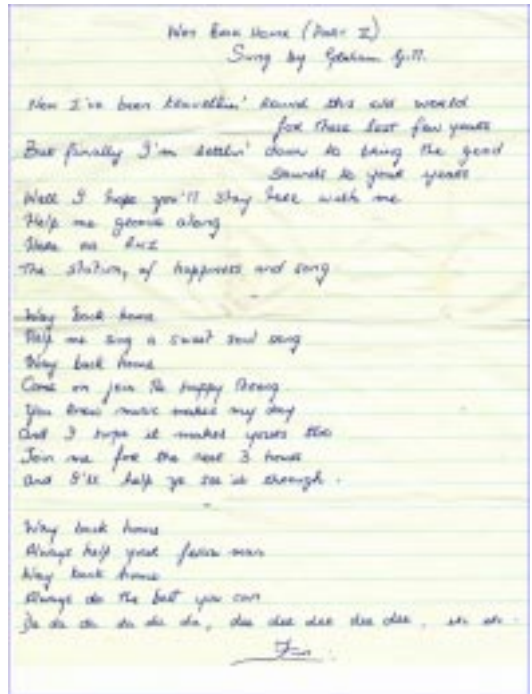 Way Back Home (Part I)
Sung by Graham Gill.
Now I've been travellin' round this old world
for these last few years
But finally I'm settlin' down to bring the good
sounds to your years
Well I hope you'll stay here with me
Help me groove along
Here on RNI
The station, of happiness and song
Way back home
Help me sing a sweet soul song
Way back home
Come on join the happy throng
You know music makes my day
And I hope it makes yours too
Join me for the next 3 hours
And I'll help ya see it through.
Way back home
Always help your fellow man
Way back home
Always do the best you can
Da da da da da da, dee dee dee dee dee, uh uh.